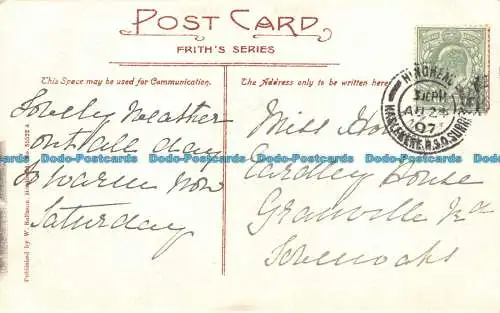 POST CARD
FRITH'S SERIES
This Space may be used for Communication.
The Address only to be written here
Lovely weather
out all day
so warm now
Saturday
Miss
Eardley House
Granville Rd
Sevenoaks
HINDHEAD
AU 24
07
HASLEMERE.R.S.O.SURREY
Published by W.
Dodo-Postcards Dodo-Postcards Dodo-Postcards Dodo-Postcards Dodo-Postcards
Dodo-Postcards Dodo-Postcards Dodo-Postcards Dodo-Postcards Dodo-Postcards